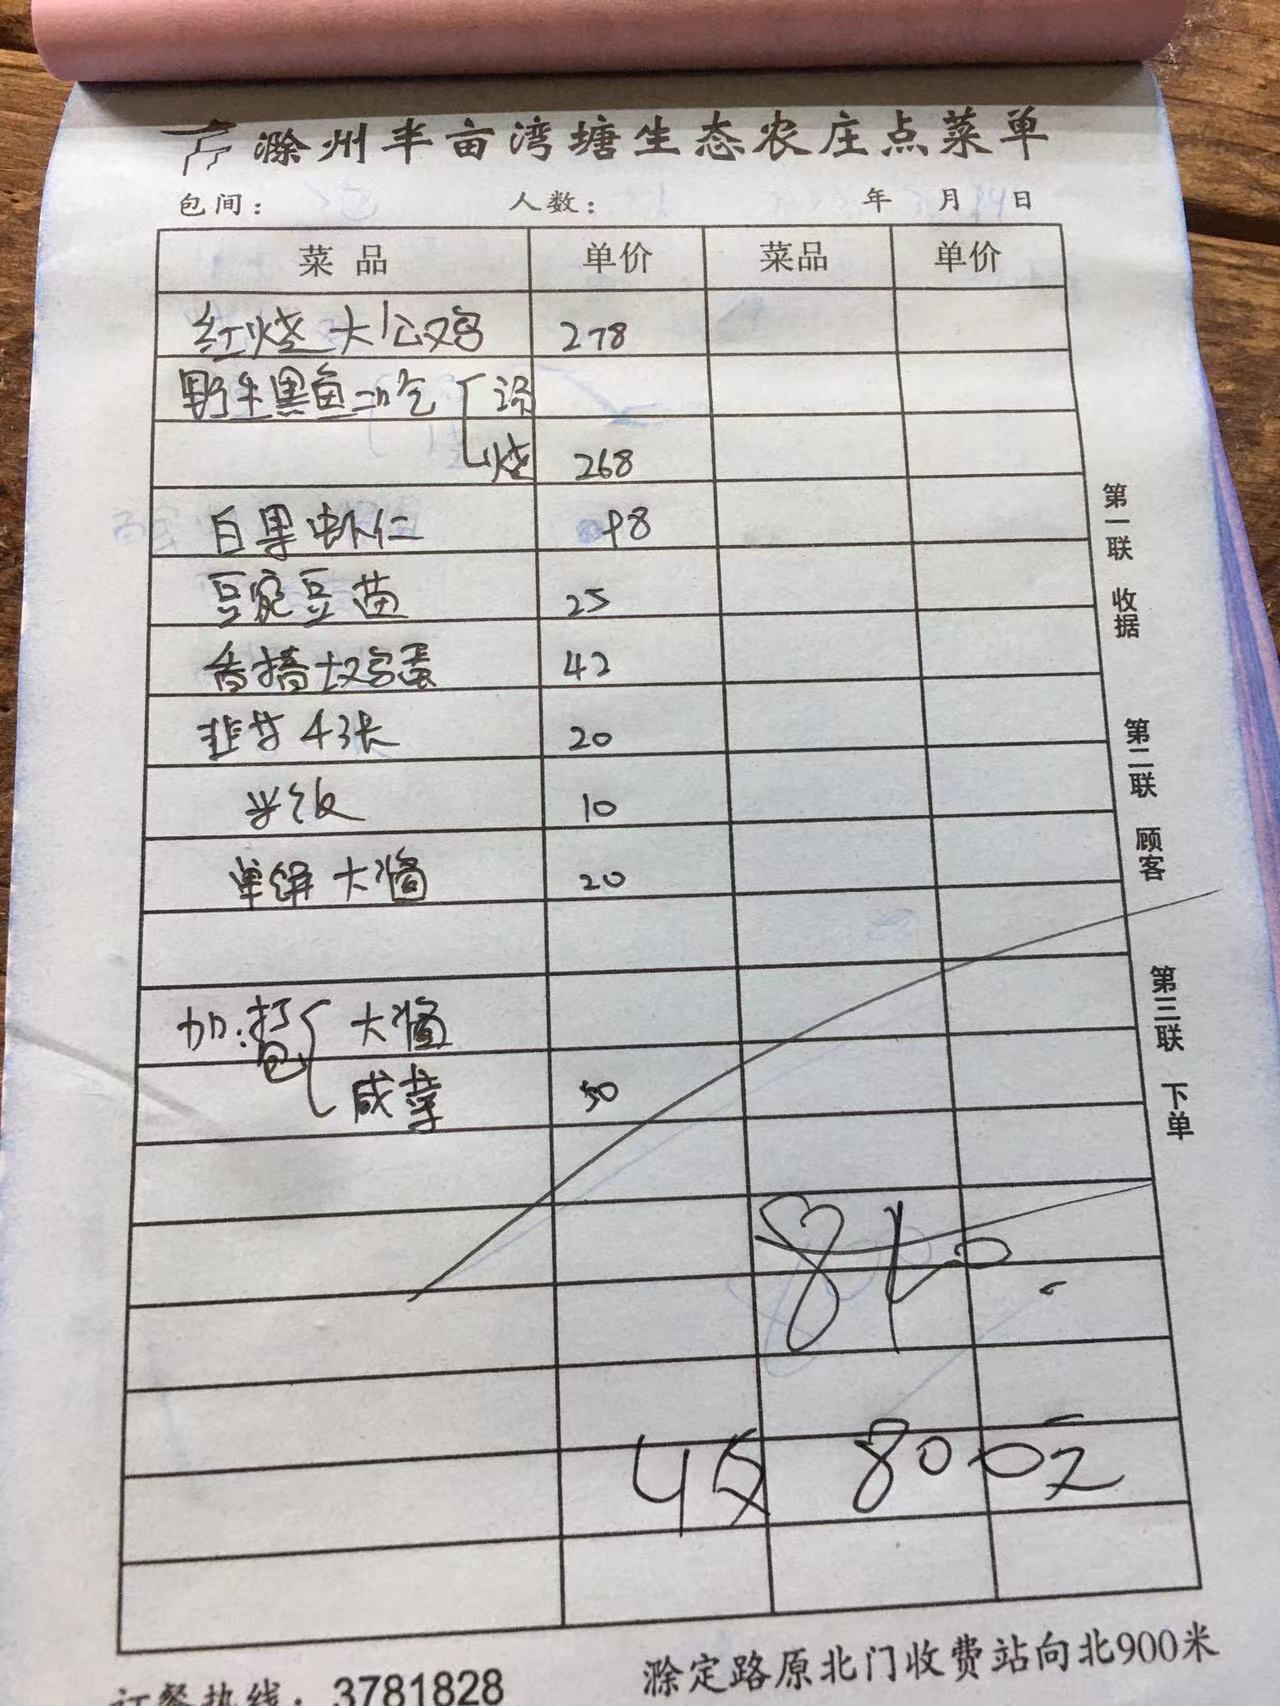 滁州半亩湾塘生态农庄点菜单
包间： 人数： 年 月 日
菜品 单价 菜品 单价
红烧大公鸡 278
野生黑鱼二吃 汤
烧 268
白果虾仁 98
豆豌豆苗 25
香椿土鸡蛋 42
韭芽 4张 20
米饭 10
单饼大酱 20
加:打包 大酱
咸菜 50
810
收 800元
第一联 收据
第二联 顾客
第三联 下单
订餐热线：3781828 滁定路原北门收费站向北900米